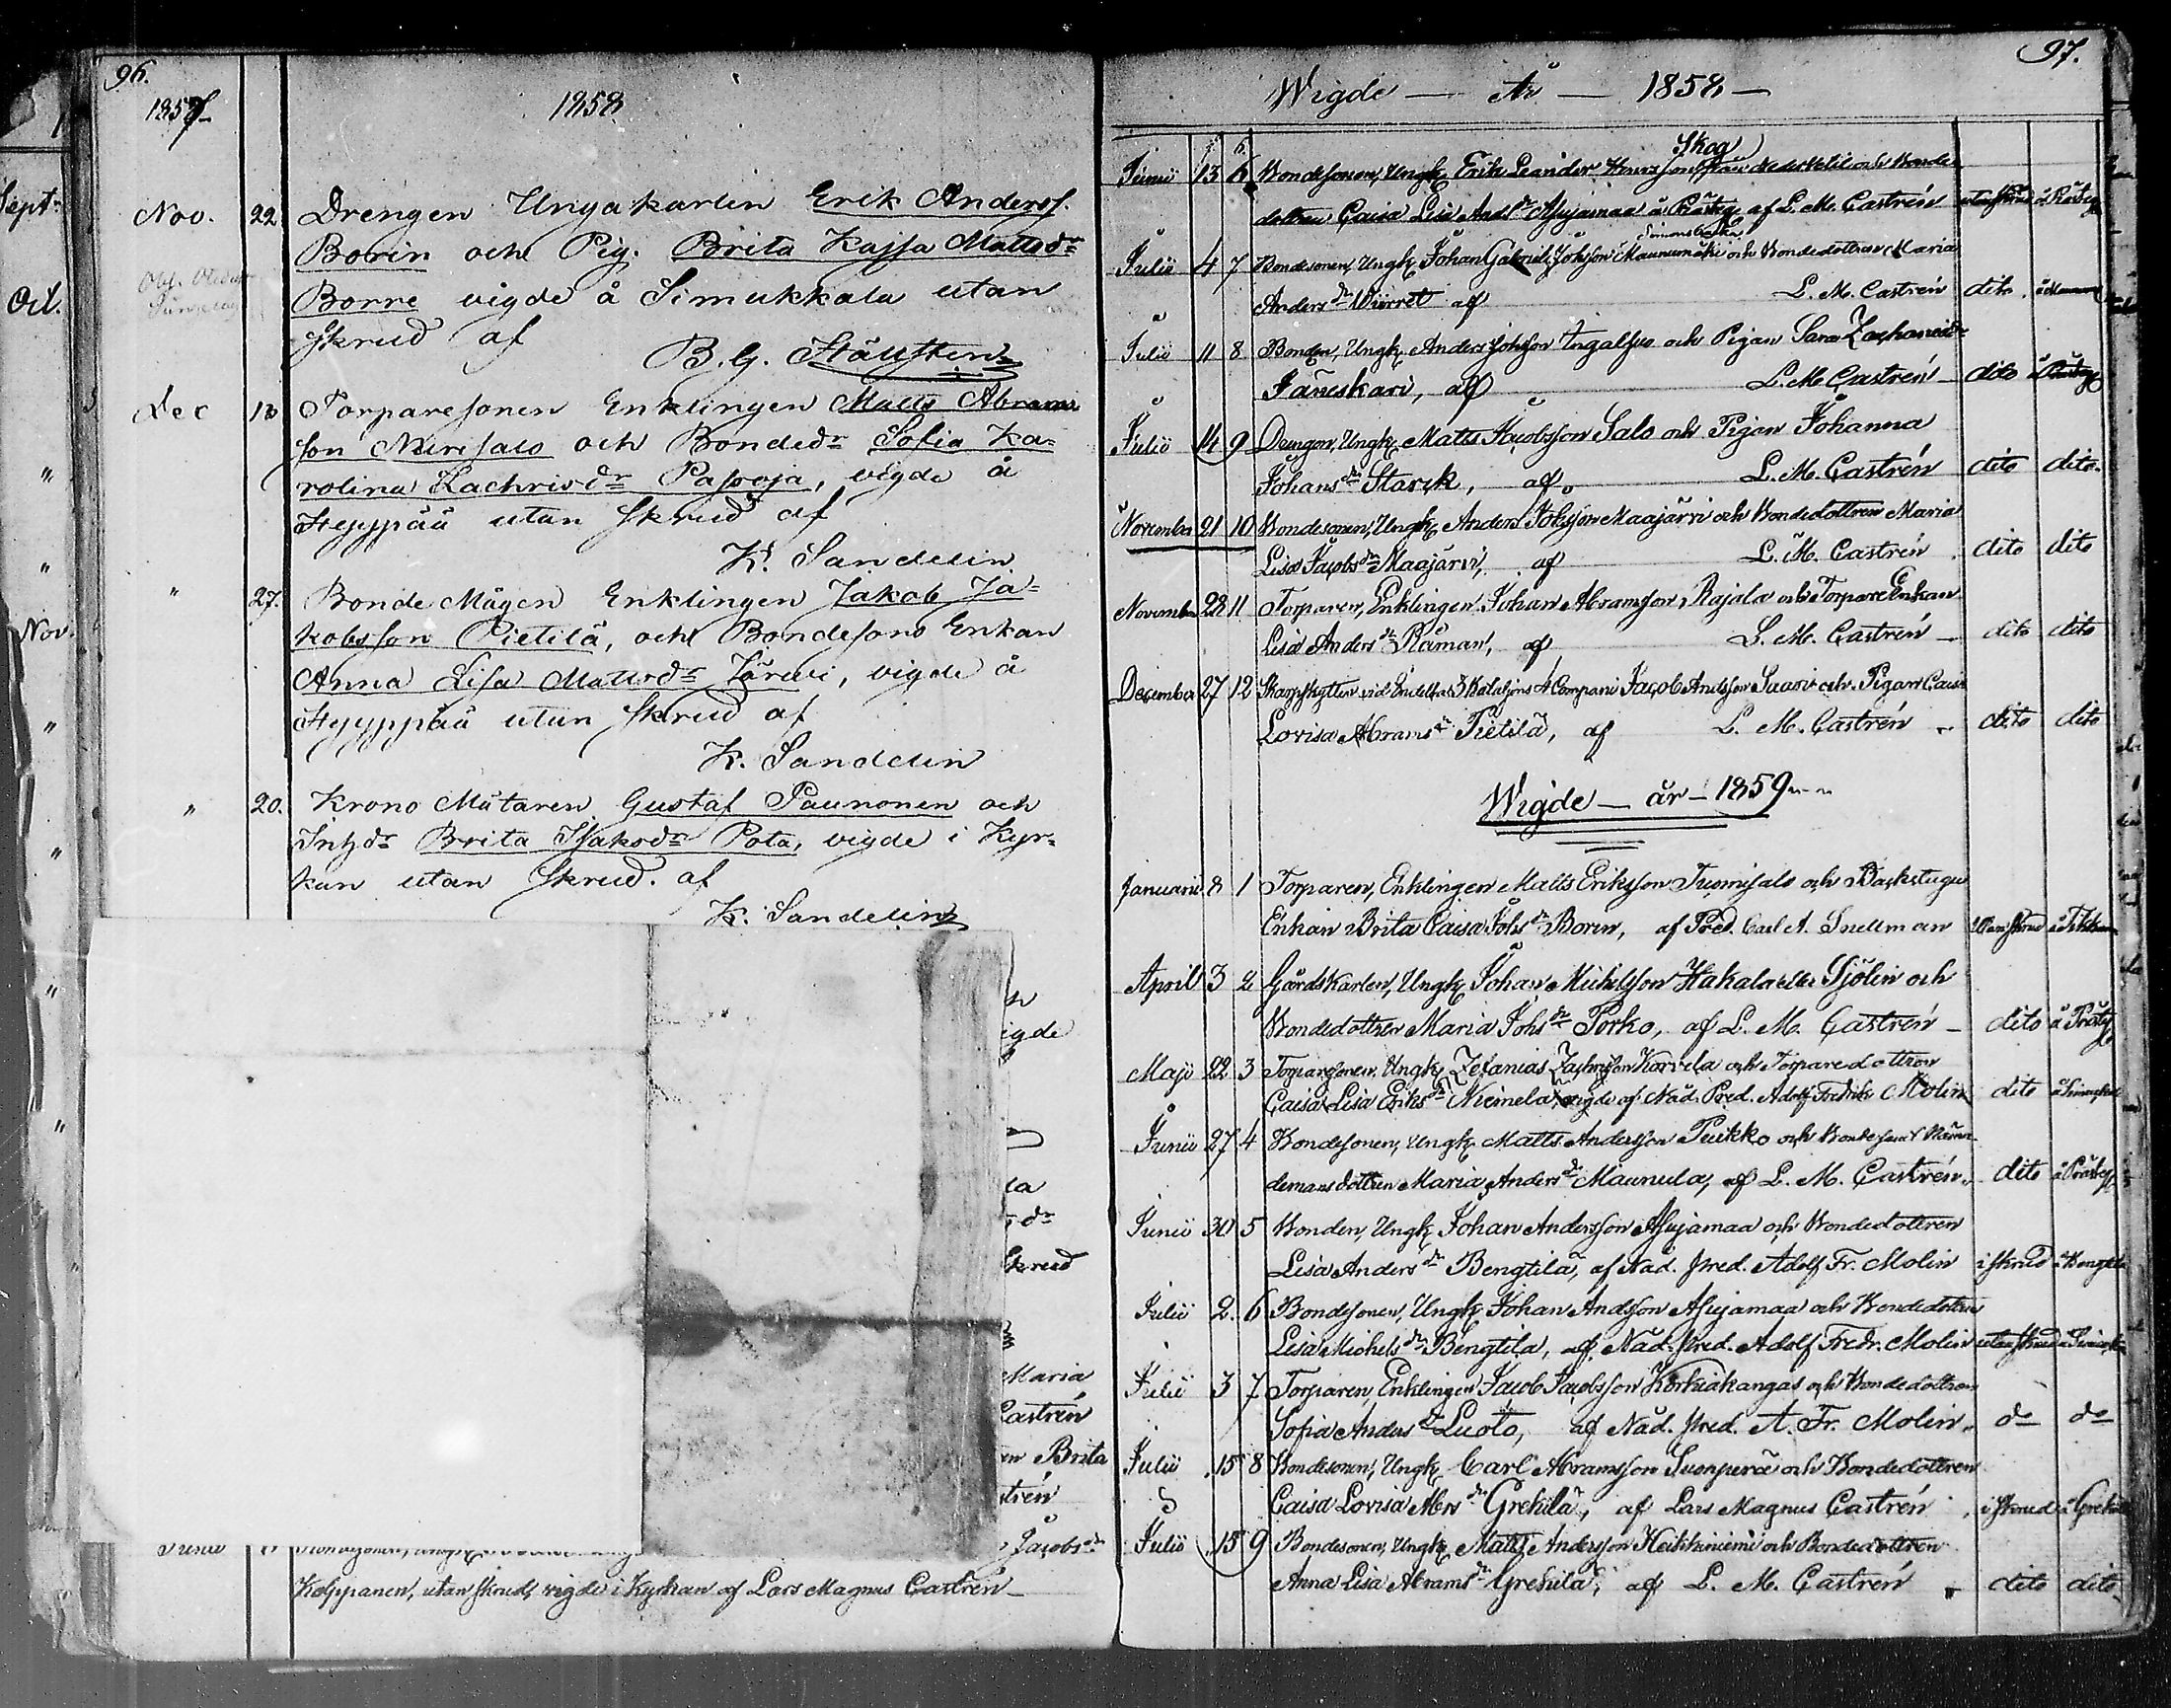 96.
1857
1858
Nov. 22. Drengen Ungakarlen Erik Anderss.
Borin och Pig. Brita Kajsa Mattsdr
Borre vigde å Simukkala utan
skrud af
B. G. Ståhlsten
Dec 13 Torparesonen Enklingen Matts Abrams
son och Bondedr Sofia Ka-
rolina Zachrisdr Pasoja, vigde å
Hyyppää utan skrud af
K. Sandelin
" 27. Bonde Mågen Enklingen Jakob Ja-
kobsson Pietilä, och Bondesons Enkan
Anna Lisa Mattsdr Järvi, vigde å
Hyyppää utan skrud af
K. Sandelin
" 20. Krono Mätaren Gustaf Paunonen och
Inhdr Brita Isaksdr Pota, vigde i Kyr-
kan utan skrud. af
K. Sandelin
igde
la
dr
skrud
Maria
Castrén
en Brita
strén
Jacobsdr
Junii
Keppanen, utan skrud, vigde i Kyrkan af Lars Magnus Castrén
Sept.
Oct.
"
"
Nov.
"
"
"
"
97.
Wigde — År — 1858 —
Skog
Junii 13 6 Bondesonen, Ungk. Erik Leander och Bonde
dottren Caisa Lisa Andsdr Asujamaa å Prästg. af L. M. Castrén utan skrud å Prästg.
Julii 4 7 Bondesonen, Ungk. Johan Gabriel Johsson Maunumäki och Bondedottren Maria
Andersdr Wiirret af L. M. Castrén dito
Julii 11 8 Bonden, Ungk. Anders Johsson Ingalsuo och Pigan Sara Zachariædr
Jäneskari, af L. M. Castrén dito å Prästg.
Julii 14 9 Drengen, Ungk. Matts Jacobsson Salo och Pigan Johanna
Johansdr Starck, af L. M. Castrén dito dito.
November 21 10 Bondesonen, Ungk. Anders Johsson Maajärvi och Bondedottren Maria
Lisa Jacobsdr Maajärvi, af L. M. Castrén dito dito
November 28 11 Torparen, Enklingen Johan Abramsson Rajala och Torpare Enkan
Lisa Andersdr Råman, af L. M. Castrén — dito dito
December 27 12 Skarpskytten vid Bataljons 4 Compani Jacob Andsson Suari och Pigan Caisa
Lovisa Abramsdr Pietilä, af L. M. Castrén dito dito
Wigde — år — 1859
Januarii 8 1 Torparen, Enklingen Matts Eriksson Tuomisalo och Backstugu
Enkan Brita Caisa Johsdr Boren, af Pred. Carl A. Snellman utan skrud
April 3 2 Gårdskarlen, Ungk. Johan Michelsson Hakala eller Sjölin och
Bondedottren Maria Johsdr Porko, af L. M. Castrén — dito å Prästg.
Maji 22 3 Torparsonen, Ungk. Zefanias Zachrisson Karvela och Torparedottren
Caisa Lisa Eriksdr Niemelä, vigde af Nåd. Pred. Adolf Fredrik Molin dito
Junii 27 4 Bondesonen, Ungk. Matts Andersson Puikko och Nämn
demansdottren Maria Andersdr Maunula, af L. M. Castrén, dito å Prästg.
Junii 30 5 Bonden, Ungk. Johan Andersson Asujamaa och Bondedottren
Lisa Andersdr Bengtilä, af Nåd. pred. Adolf Fr. Molin i skrud å Bengtilä
Julii 2. 6 Bondesonen, Ungk. Johan Andsson Asujamaa och Bondedottren
Lisa Michelsdr Bengtilä, af Nåd. pred. Adolf Fredr. Molin utan skrud
Julii 3 7 Torparen, Enklingen Jacob Jacobsson Korkiakangas och Bondedottren
Sofia Andersdr Luoto, af Nåd. pred. A. Fr. Molin. do do
Julii 15 8 Bondesonen, Ungk. Carl Abramsson Suonperä och Bondedottren
Caisa Lovisa Abrsdr Grekilä, af Lars Magnus Castrén i skrud å Grekilä
Julii 15 9 Bondesonen, Ungk. Matts Andersson Heikkiniemi och Bondedottren
Anna Lisa Abramsdr Grekilä, af L. M. Castrén dito dito